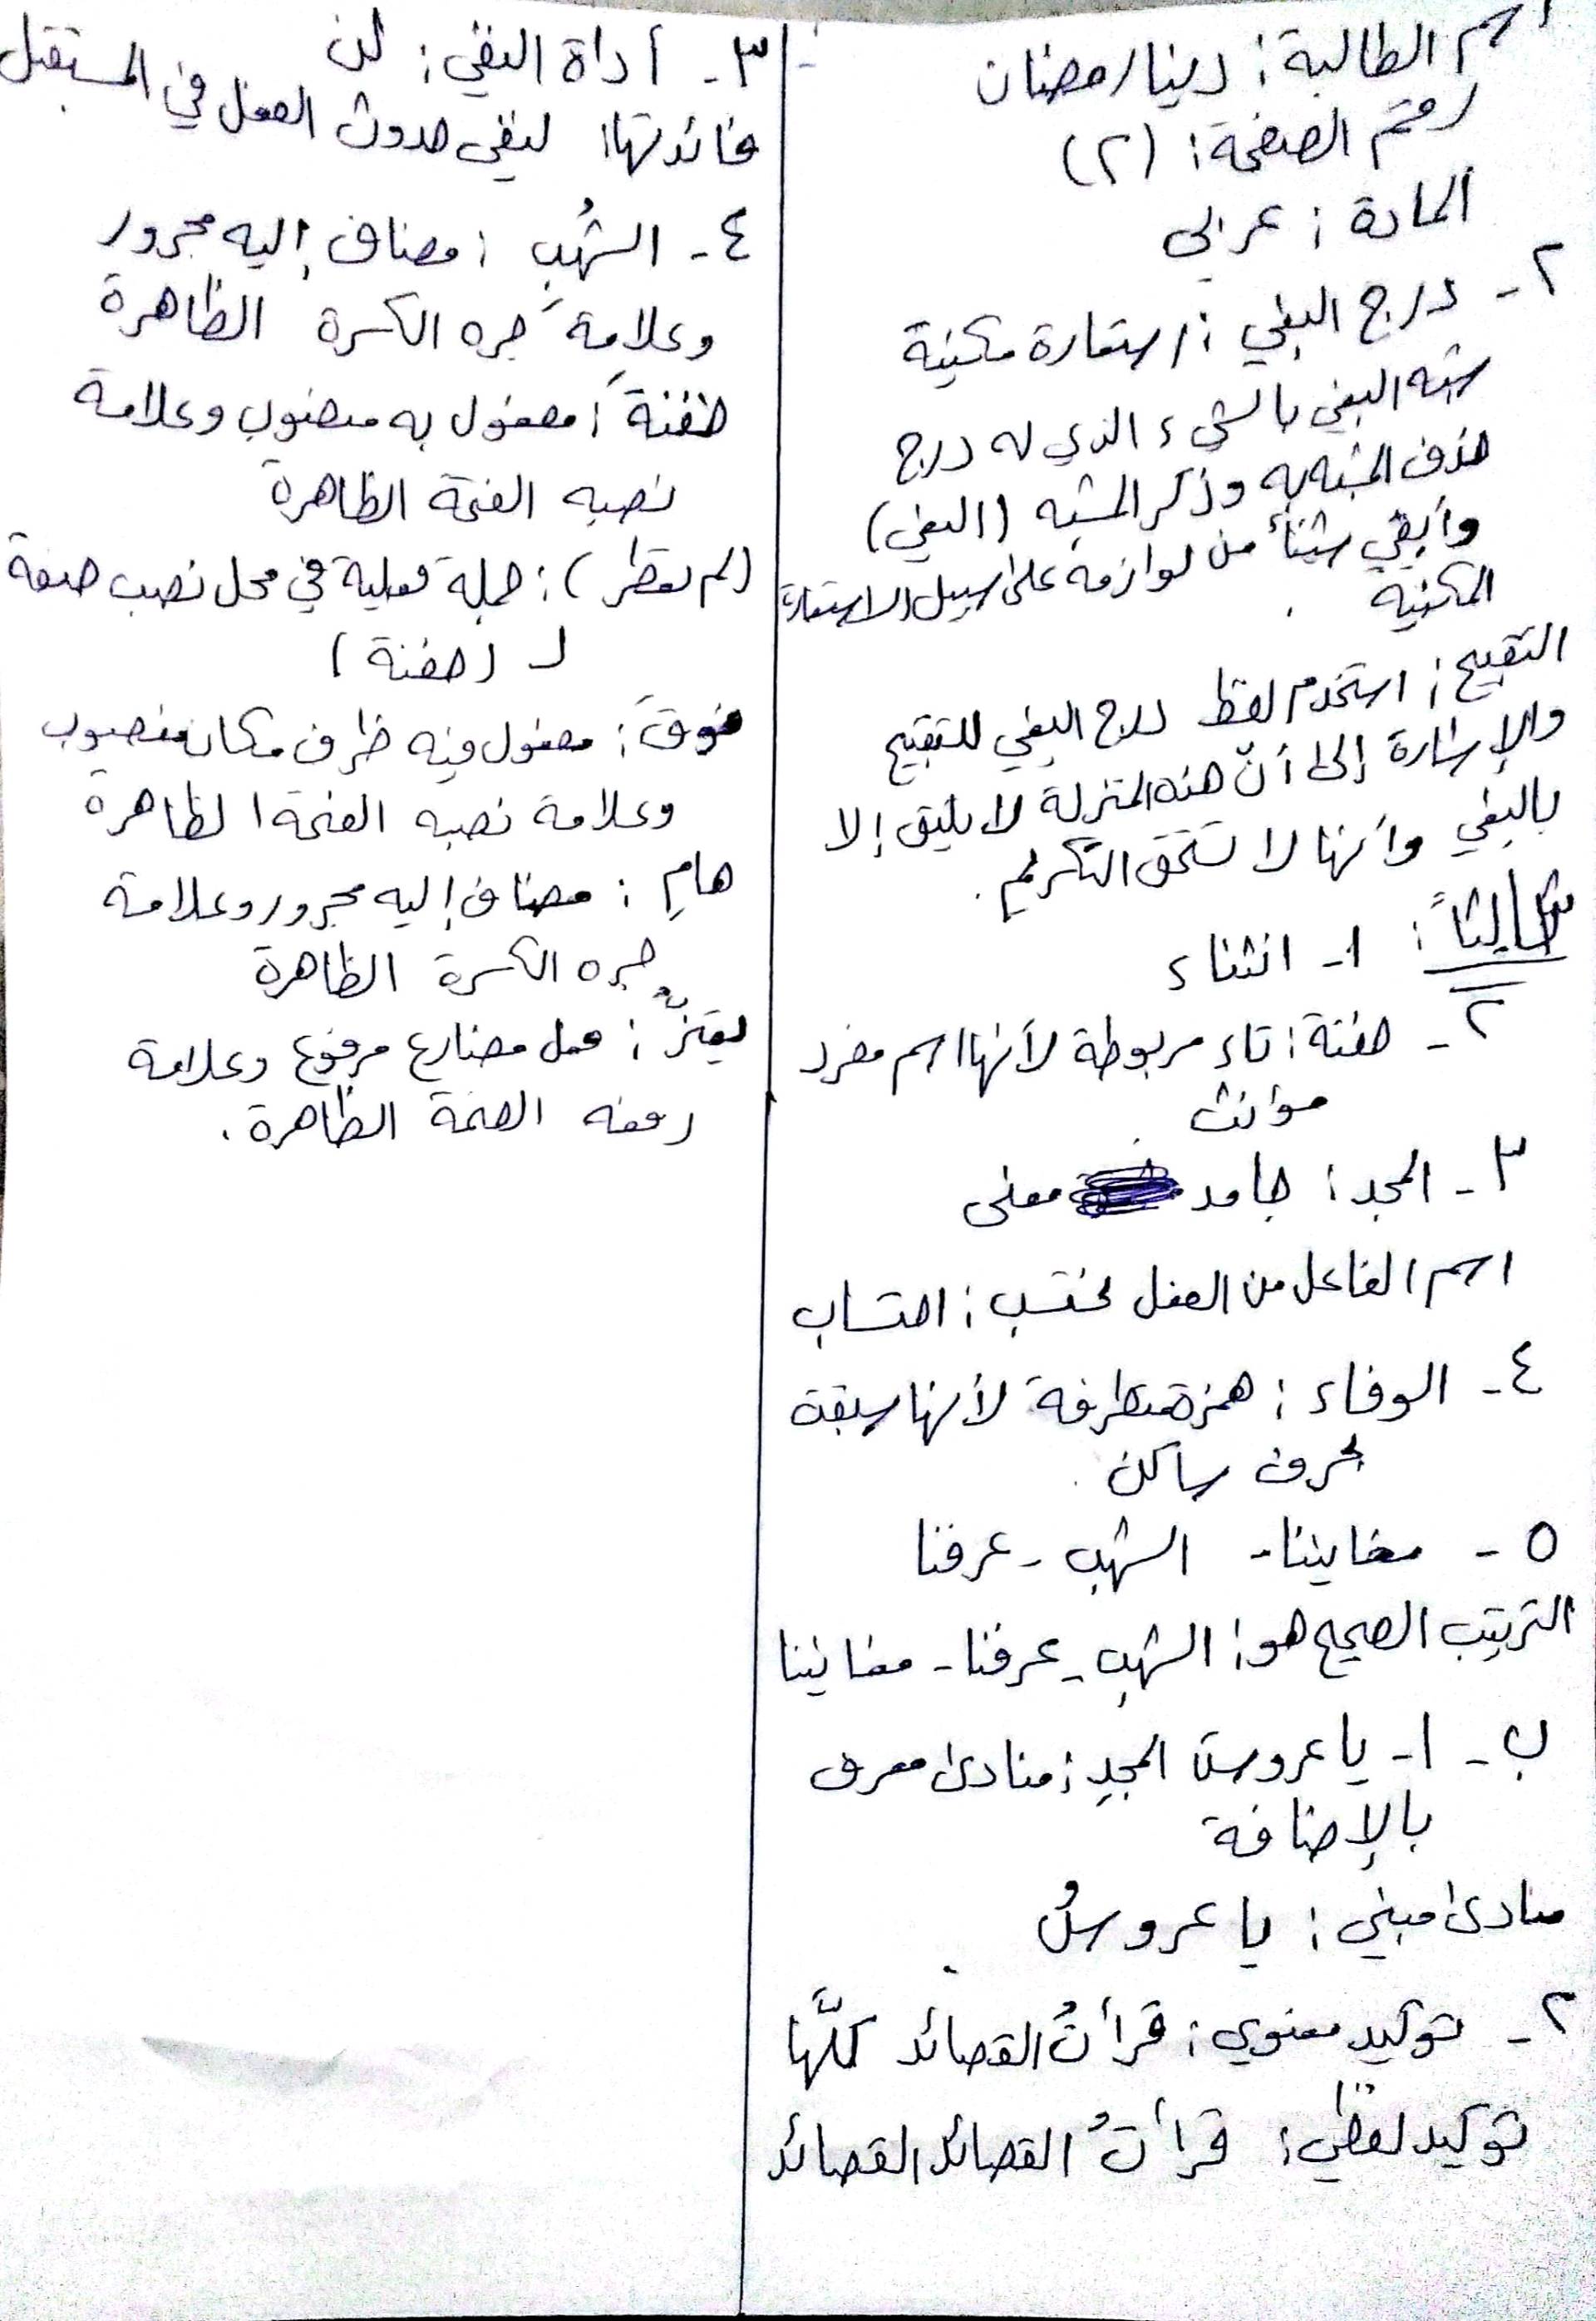 اسم الطالبة: دينا رمضان
رقم الصفحة: (٢)
المادة: عربي
٢- درج البغي: استعارة مكنية
شبه البغي بالشيء الذي له درج
حذف المشبه به وذكر المشبه (البغي)
وأبقي شيئاً من لوازمه على سبيل الاستعارة
المكنية.
التقبيح: استخدم لفظ درج البغي للتقبيح
والإشارة إلى أنّ هذه المنزلة لا يليق إلا
بالبغي وأنها لا تستحق التكريم.
ثالثاً: ١- انثناء
٢- حفنة: تاء مربوطة لأنها اسم مفرد
مؤنث.
٣- المجد: جامد معنى
اسم الفاعل من الفعل نحتسب: احتساب
٤- الوفاء: همزة متطرفة لأنها سبقت
بحرف ساكن.
٥- مغانينا- الشهب- عرفنا
الترتيب الصحيح هو: الشهب- عرفنا- مغانينا
ب- ١- يا عروسَ المجدِ: منادى معرف
بالإضافة
منادى مبني: يا عروسُ
٢- توكيد معنوي: قرأتُ القصائد كلَّها
توكيد لفظي: قرأتُ القصائد القصائد
٣- أداة النفي: لن
فائدتها: لنفي حدوث الفعل في المستقبل
٤- الشهُبِ: مضاف إليه مجرور
وعلامة جره الكسرة الظاهرة
حفنةً: مفعول به منصوب وعلامة
نصبه الفتحة الظاهرة
(لم تعطر): جملة فعلية في محل نصب صفة
لـ (حفنة)
فوقَ: مفعول فيه ظرف مكان منصوب
وعلامة نصبه الفتحة الظاهرة
هامِ: مضاف إليه مجرور وعلامة
جره الكسرة الظاهرة
يهتزُّ: فعل مضارع مرفوع وعلامة
رفعه الضمة الظاهرة.